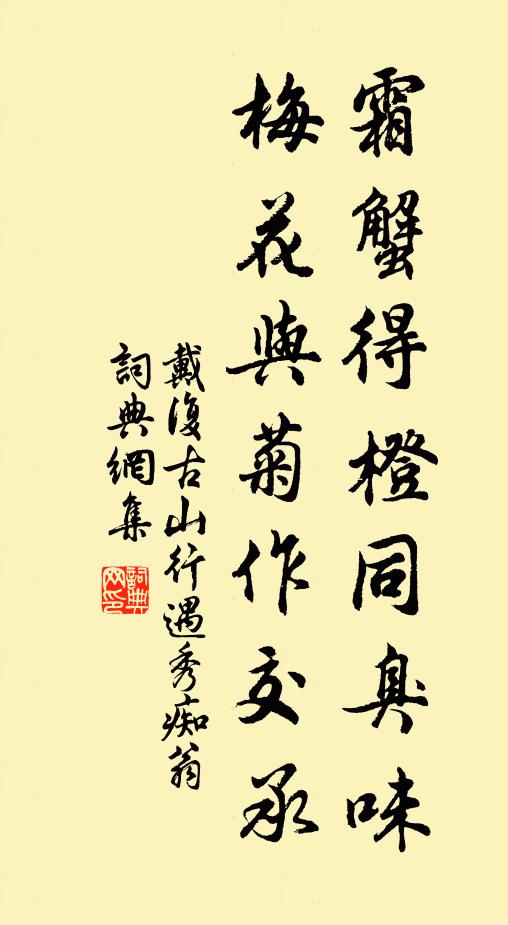 霜蟹得橙同臭味
梅花與菊作交承
戴復古山行遇秀痴翁
詞典網集
詞典网印